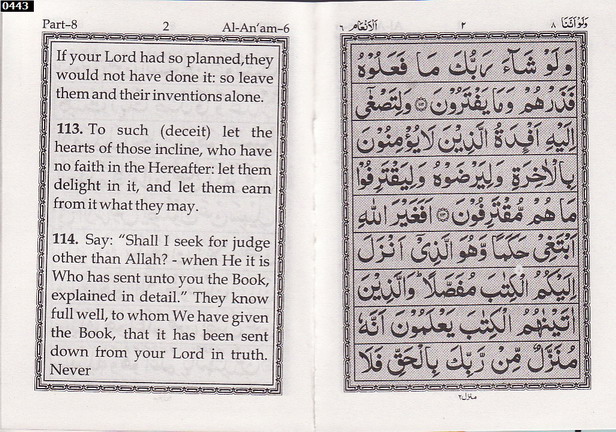 0443
Part–8 2 Al-An‘am–6
If your Lord had so planned,they
would not have done it: so leave
them and their inventions alone.
113. To such (deceit) let the
hearts of those incline, who have
no faith in the Hereafter: let them
delight in it, and let them earn
from it what they may.
114. Say: “Shall I seek for judge
other than Allah? - when He it is
Who has sent unto you the Book,
explained in detail.” They know
full well, to whom We have given
the Book, that it has been sent
down from your Lord in truth.
Never
ولو اننا ٨ ٢ الانعام ٦
وَلَوْ شَآءَ رَبُّكَ مَا فَعَلُوْهُ
فَذَرْهُمْ وَمَا يَفْتَرُوْنَ ۝١١٢ وَلِتَصْغٰٓى
اِلَيْهِ اَفْـِٕدَةُ الَّذِيْنَ لَا يُؤْمِنُوْنَ
بِالْاٰخِرَةِ وَلِيَرْضَوْهُ وَلِيَقْتَرِفُوْا
مَا هُمْ مُّقْتَرِفُوْنَ ۝١١٣ اَفَغَيْرَ اللّٰهِ
اَبْتَغِيْ حَكَمًا وَّهُوَ الَّذِيْٓ اَنْزَلَ
اِلَيْكُمُ الْكِتٰبَ مُفَصَّلًا ؕ وَالَّذِيْنَ
اٰتَيْنٰهُمُ الْكِتٰبَ يَعْلَمُوْنَ اَنَّهٗ
مُنَزَّلٌ مِّنْ رَّبِّكَ بِالْحَقِّ فَلَا
منزل ٢